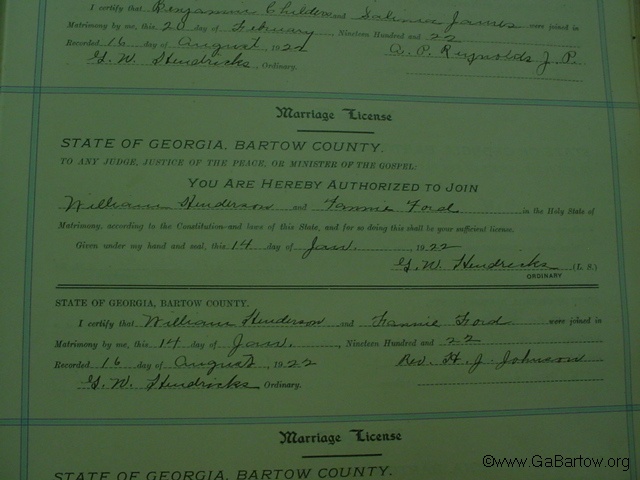 I certify that Benjamin Childers and Salinia James were joined in
Matrimony by me, this 20 day of February, Nineteen Hundred and 22
Recorded 16 day of August, 1922 A. P. Reynolds J. P.
G. W. Hendricks, Ordinary.
Marriage License
STATE OF GEORGIA, BARTOW COUNTY.
TO ANY JUDGE, JUSTICE OF THE PEACE, OR MINISTER OF THE GOSPEL:
YOU ARE HEREBY AUTHORIZED TO JOIN
William Henderson and Fannie Ford in the Holy State of
Matrimony, according to the Constitution and laws of this State, and for so doing this shall be your sufficient license.
Given under my hand and seal, this 14 day of Jan. , 1922
G. W. Hendricks (L. S.)
ORDINARY
STATE OF GEORGIA, BARTOW COUNTY.
I certify that William Henderson and Fannie Ford were joined in
Matrimony by me, this 14 day of Jan. , Nineteen Hundred and 22
Recorded 16 day of August, 1922 Rev. H. J. Johnson
G. W. Hendricks Ordinary.
Marriage License
STATE OF GEORGIA, BARTOW COUNTY.
©www.GaBartow.org